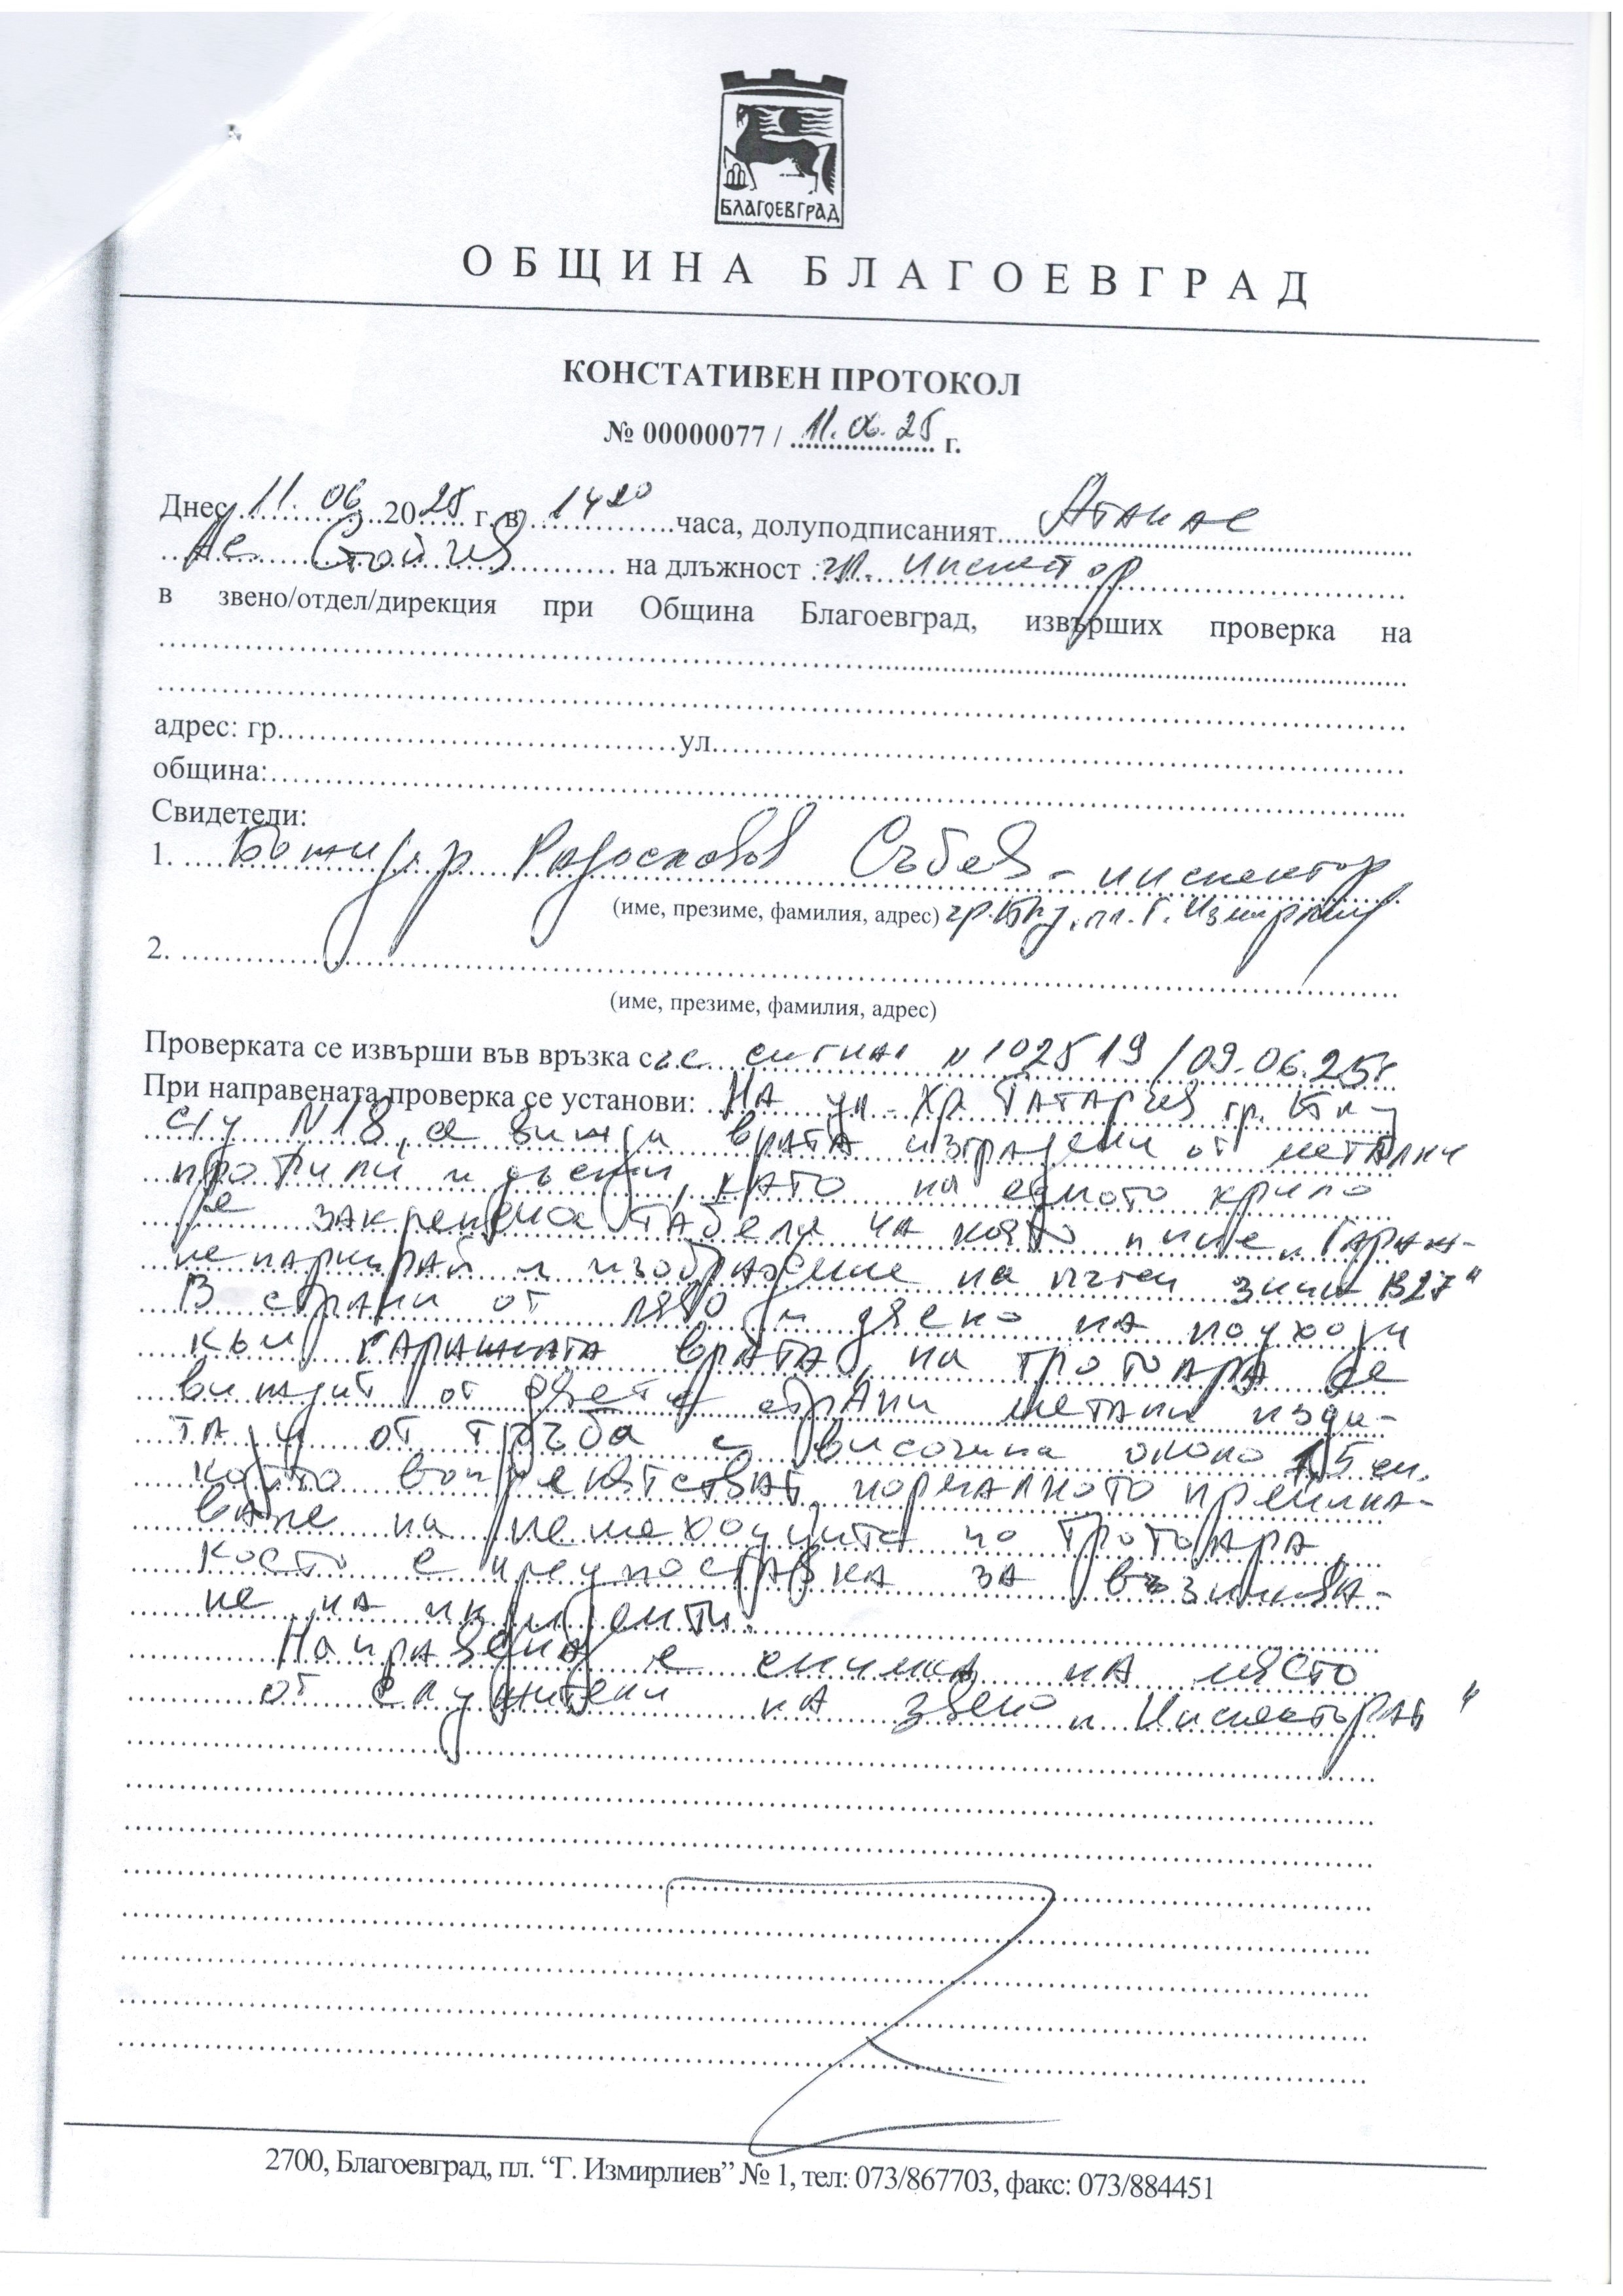 БЛАГОЕВГРАД
ОБЩИНА БЛАГОЕВГРАД
КОНСТАТИВЕН ПРОТОКОЛ
№ 00000077 / 11.06.25 г.
Днес 11.06.2025 г. в 14 20 часа, долуподписаният Атанас
Ас Стойчев на длъжност гл. инспектор
в звено/отдел/дирекция при Община Благоевград, извърших проверка на
адрес: гр. ул.
община:
Свидетели:
1. Божидар Радославов Събев - инспектор
(име, презиме, фамилия, адрес) гр. Блг, пл. Г. Измирлиев
2.
(име, презиме, фамилия, адрес)
Проверката се извърши във връзка с сигнал №102519/09.06.25г
При направената проверка се установи: На ул. Хр. Татарчев гр.
с/у №18, се вижда врата изградени от метални
профили и дъски, като на едното крило
е закрепена табела на която пише „Гараж-
не паркирай и изображение на пътен знак В27"
В страни от ляво и дясно на подхода
към гаражната врата, на тротоара се
виждат от двете страни метални изда-
от тръба с височина около 15 см.
които възпрепятстват нормалното премина-
ване на пешеходците по тротоара
което е предпоставка за възниква-
не на инциденти.
Направена е снимка на място
от служители на звено „Инспекторат"
2700, Благоевград, пл. “Г. Измирлиев” № 1, тел: 073/867703, факс: 073/884451